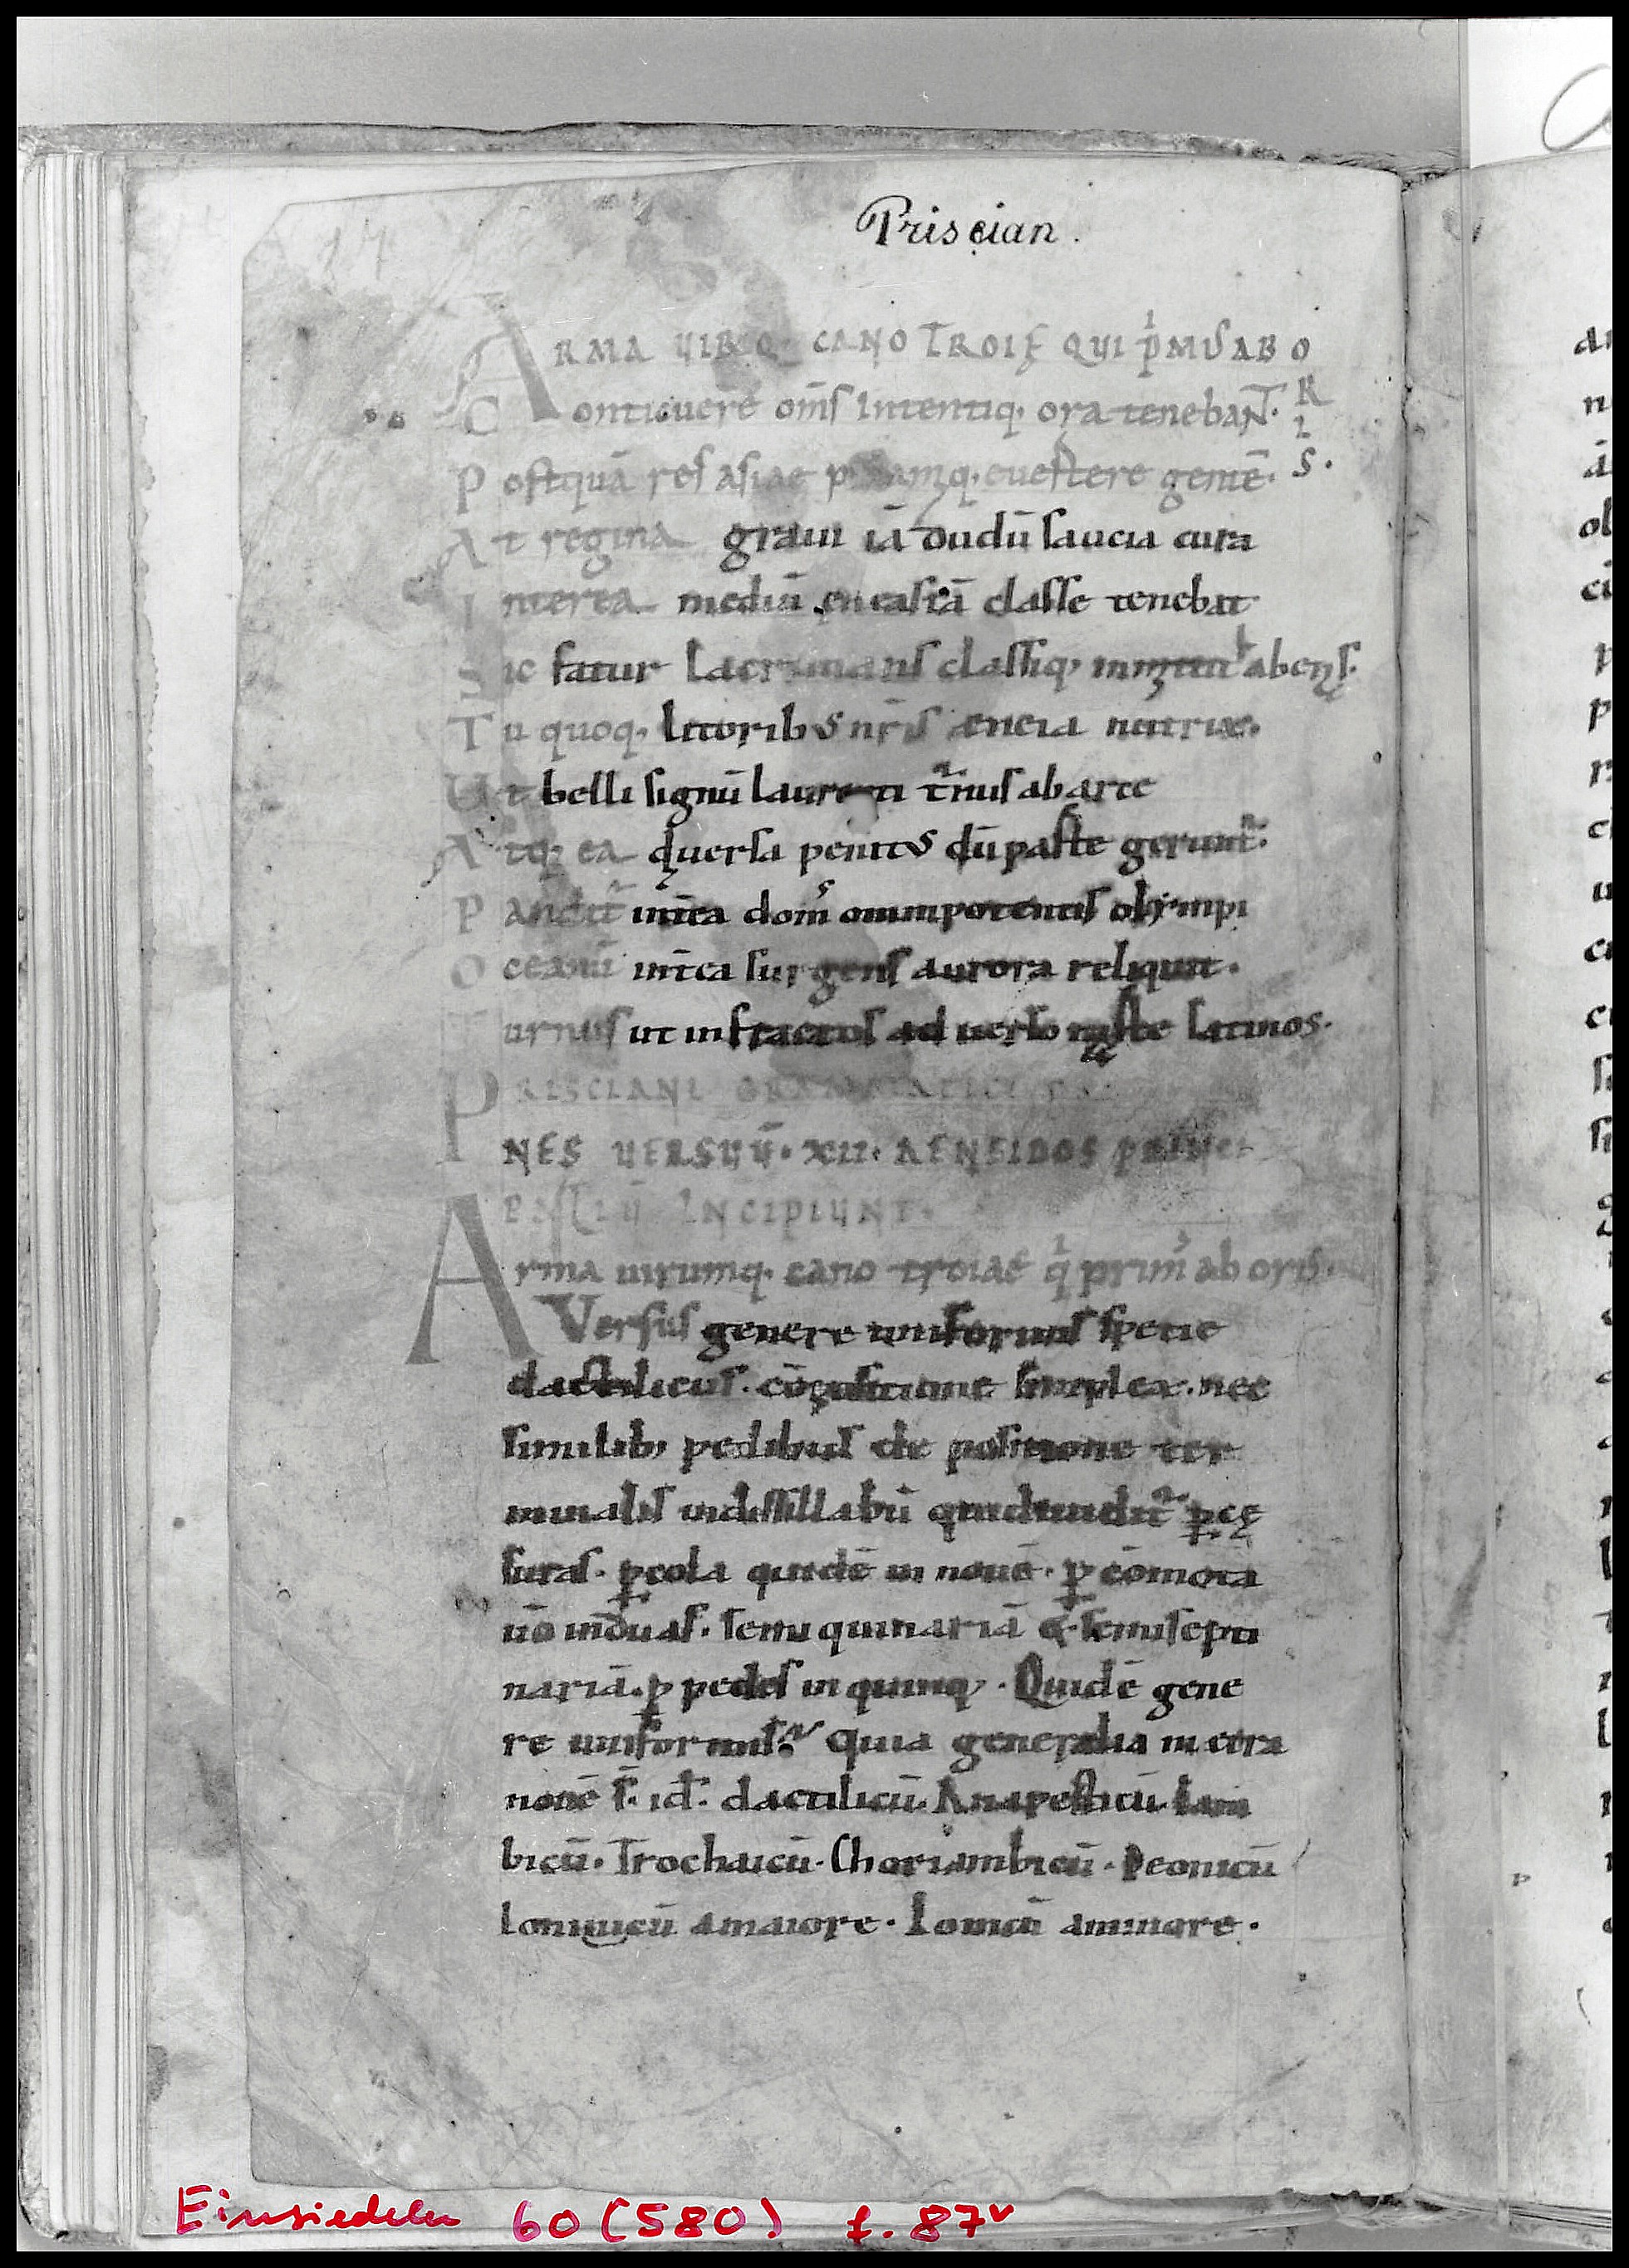 17
Priscian.
ARMA UIRŪQ. CANO TROIĘ QUI PͥMUS AB O
RIS.
Conticuere om̄s intentiq. ora tenebaNT.
Postquā res asiae priamiq. euertere gentē.
At regina graui iā dudū saucia cura
Interea mediū eneas iā classe tenebat
Sic fatur lacrimans classiq; inmittit habenas.
Tu quoq. litoribus nr̄is aeneia nutrix.
Ut belli signū laurenti t̄nus ab arce
Atq; ea diuersa penitus dū parte gerunt᷑.
Pandit᷑ int̄ea dom᷒ omnipotentis olympi
Oceanū int̄ea surgens aurora reliquit.
Turnus ut infractos aduerso marte latinos.
PRISCIANI GRAMMATICI
NES UERSUŪ. XII. AENEIDOS PRINCI
PALIŪ INCIPIUNT.
Arma uirumq. cano troiae qͥ prim᷒ ab oris.
Versus genere uniformis specie
dactilicus. cōpositione simplex. nec
similib; pedibus de positione ter
minalis indissillabū qui diuidit᷑ p̲ cę
suras. p̲ cola quidē in nouē. p̲ cōmata
ūo in duas. semiquinariā & semisepti
nariā. p̲ pedes in quinq;. Quidē gene
re uniformis? Quia generalia metra
nouē s̄. id̄. dactilicū. Anapesticū. Iam
bicū. Trochaicū. Choriambicū. Peonicū
Ionicū amaiore. Ionicū aminore.
Einsiedeln 60 (580) f. 87v